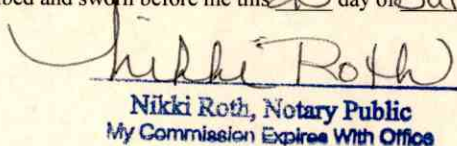 bed and sworn before me this day of
Nikki Roth
Nikki Roth, Notary Public
My Commission Expires With Office